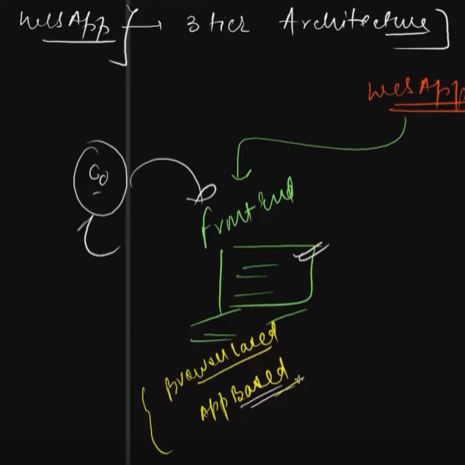 WebApp → 3 tier Architecture
WebApp
Co
frontend
Browser based
App Based